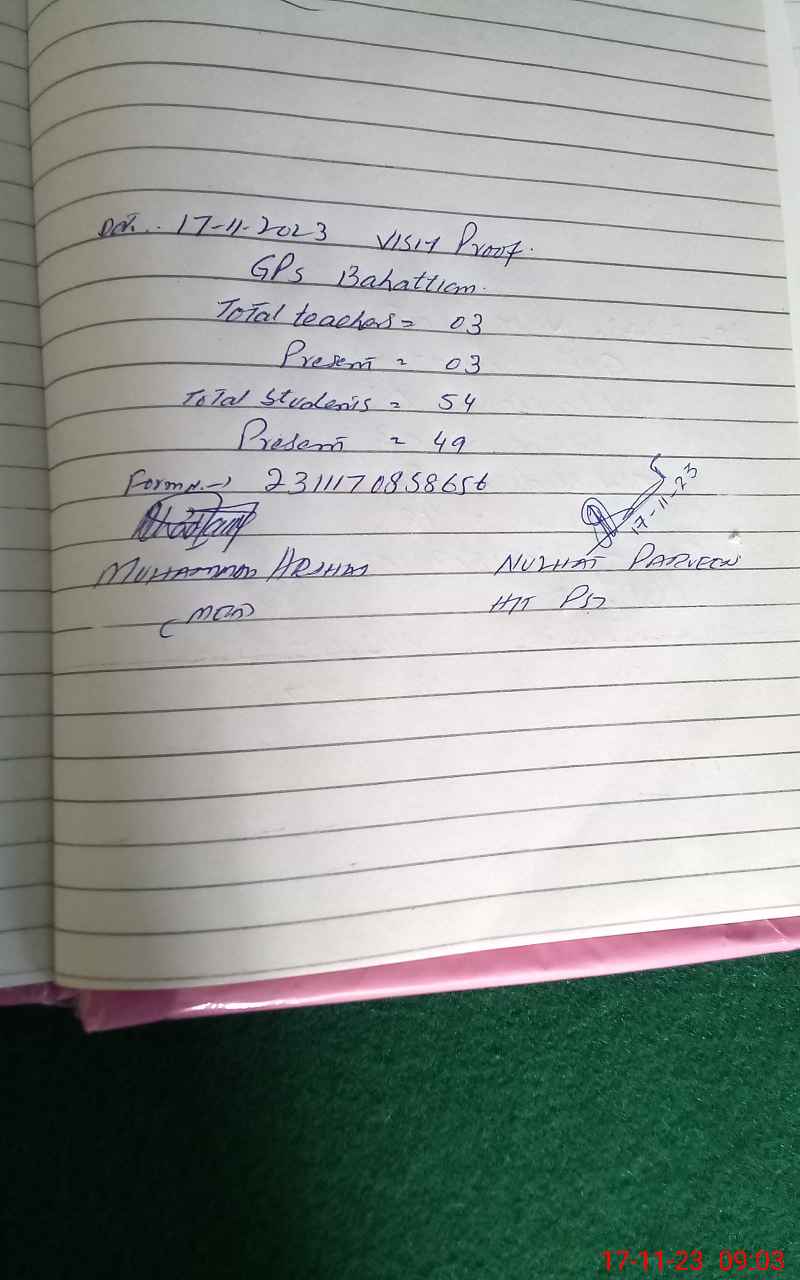 17-11-2023 Visit Proof.
GPS Bahattian.
Total teachers = 03
Present = 03
Total Students = 54
Present = 49
Form 2311170858656
17-11-23
MUHAMMAD ARSHAD NUZHAT PARVEEN
17-11-23 09:03